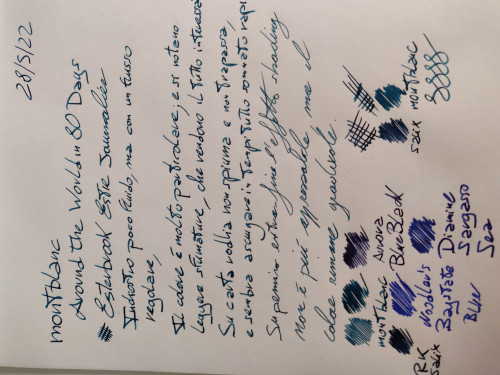 28/5/22
montblanc
Around the World in 80 Days
Esterbrook Estie Journalier
Inchiostro poco fluido, ma con flusso
regolare,
Il colore è molto particolare, e si notano
leggere sfumature, che rendono il tutto interessa
Su carta rodhia non spiuma e non trapassa,
e sembra asciugare in tempi tutto sommato rapi
Supermino extra-fine l'effetto shading
non è più apprezzabile, ma il
colore rimane gradevole.
Aurora
Blue Black
montblanc
RK
sailx
Noodler's
Baystate
Blue
Diamine
Sargasso
Sea
sailx
montblanc